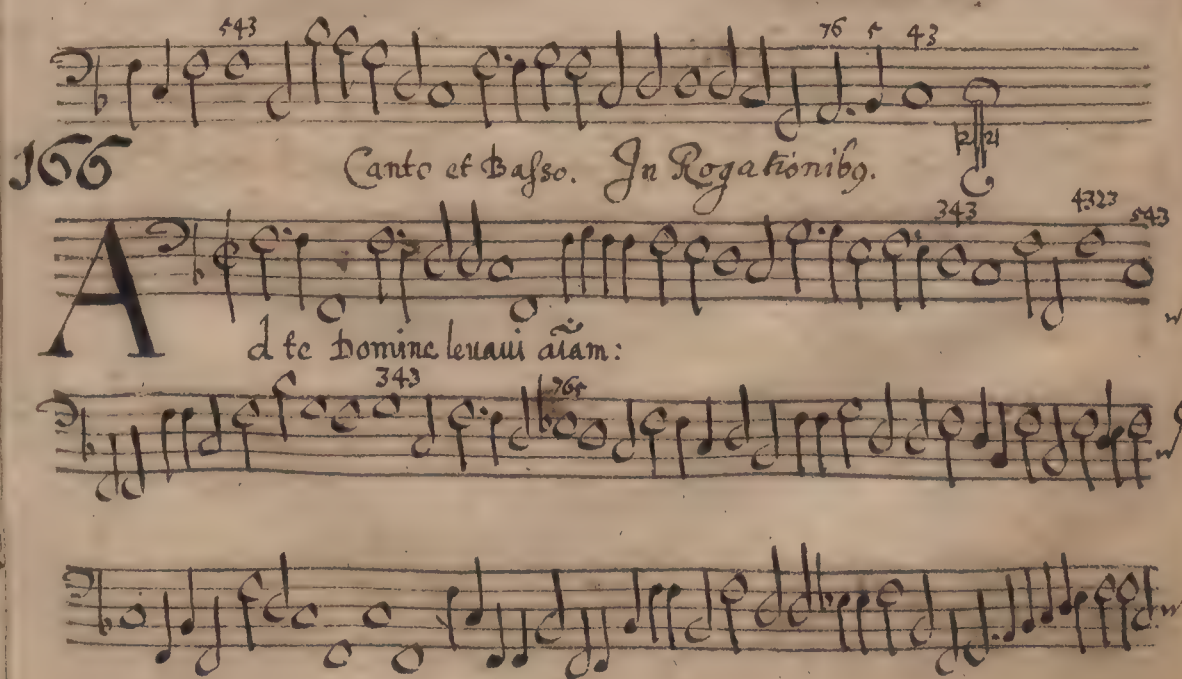 543 76 5 43
166 Canto et Basso. In Rogationibꝰ.
343 4323 543
Ad te Domine leuaui aiam:
343 765